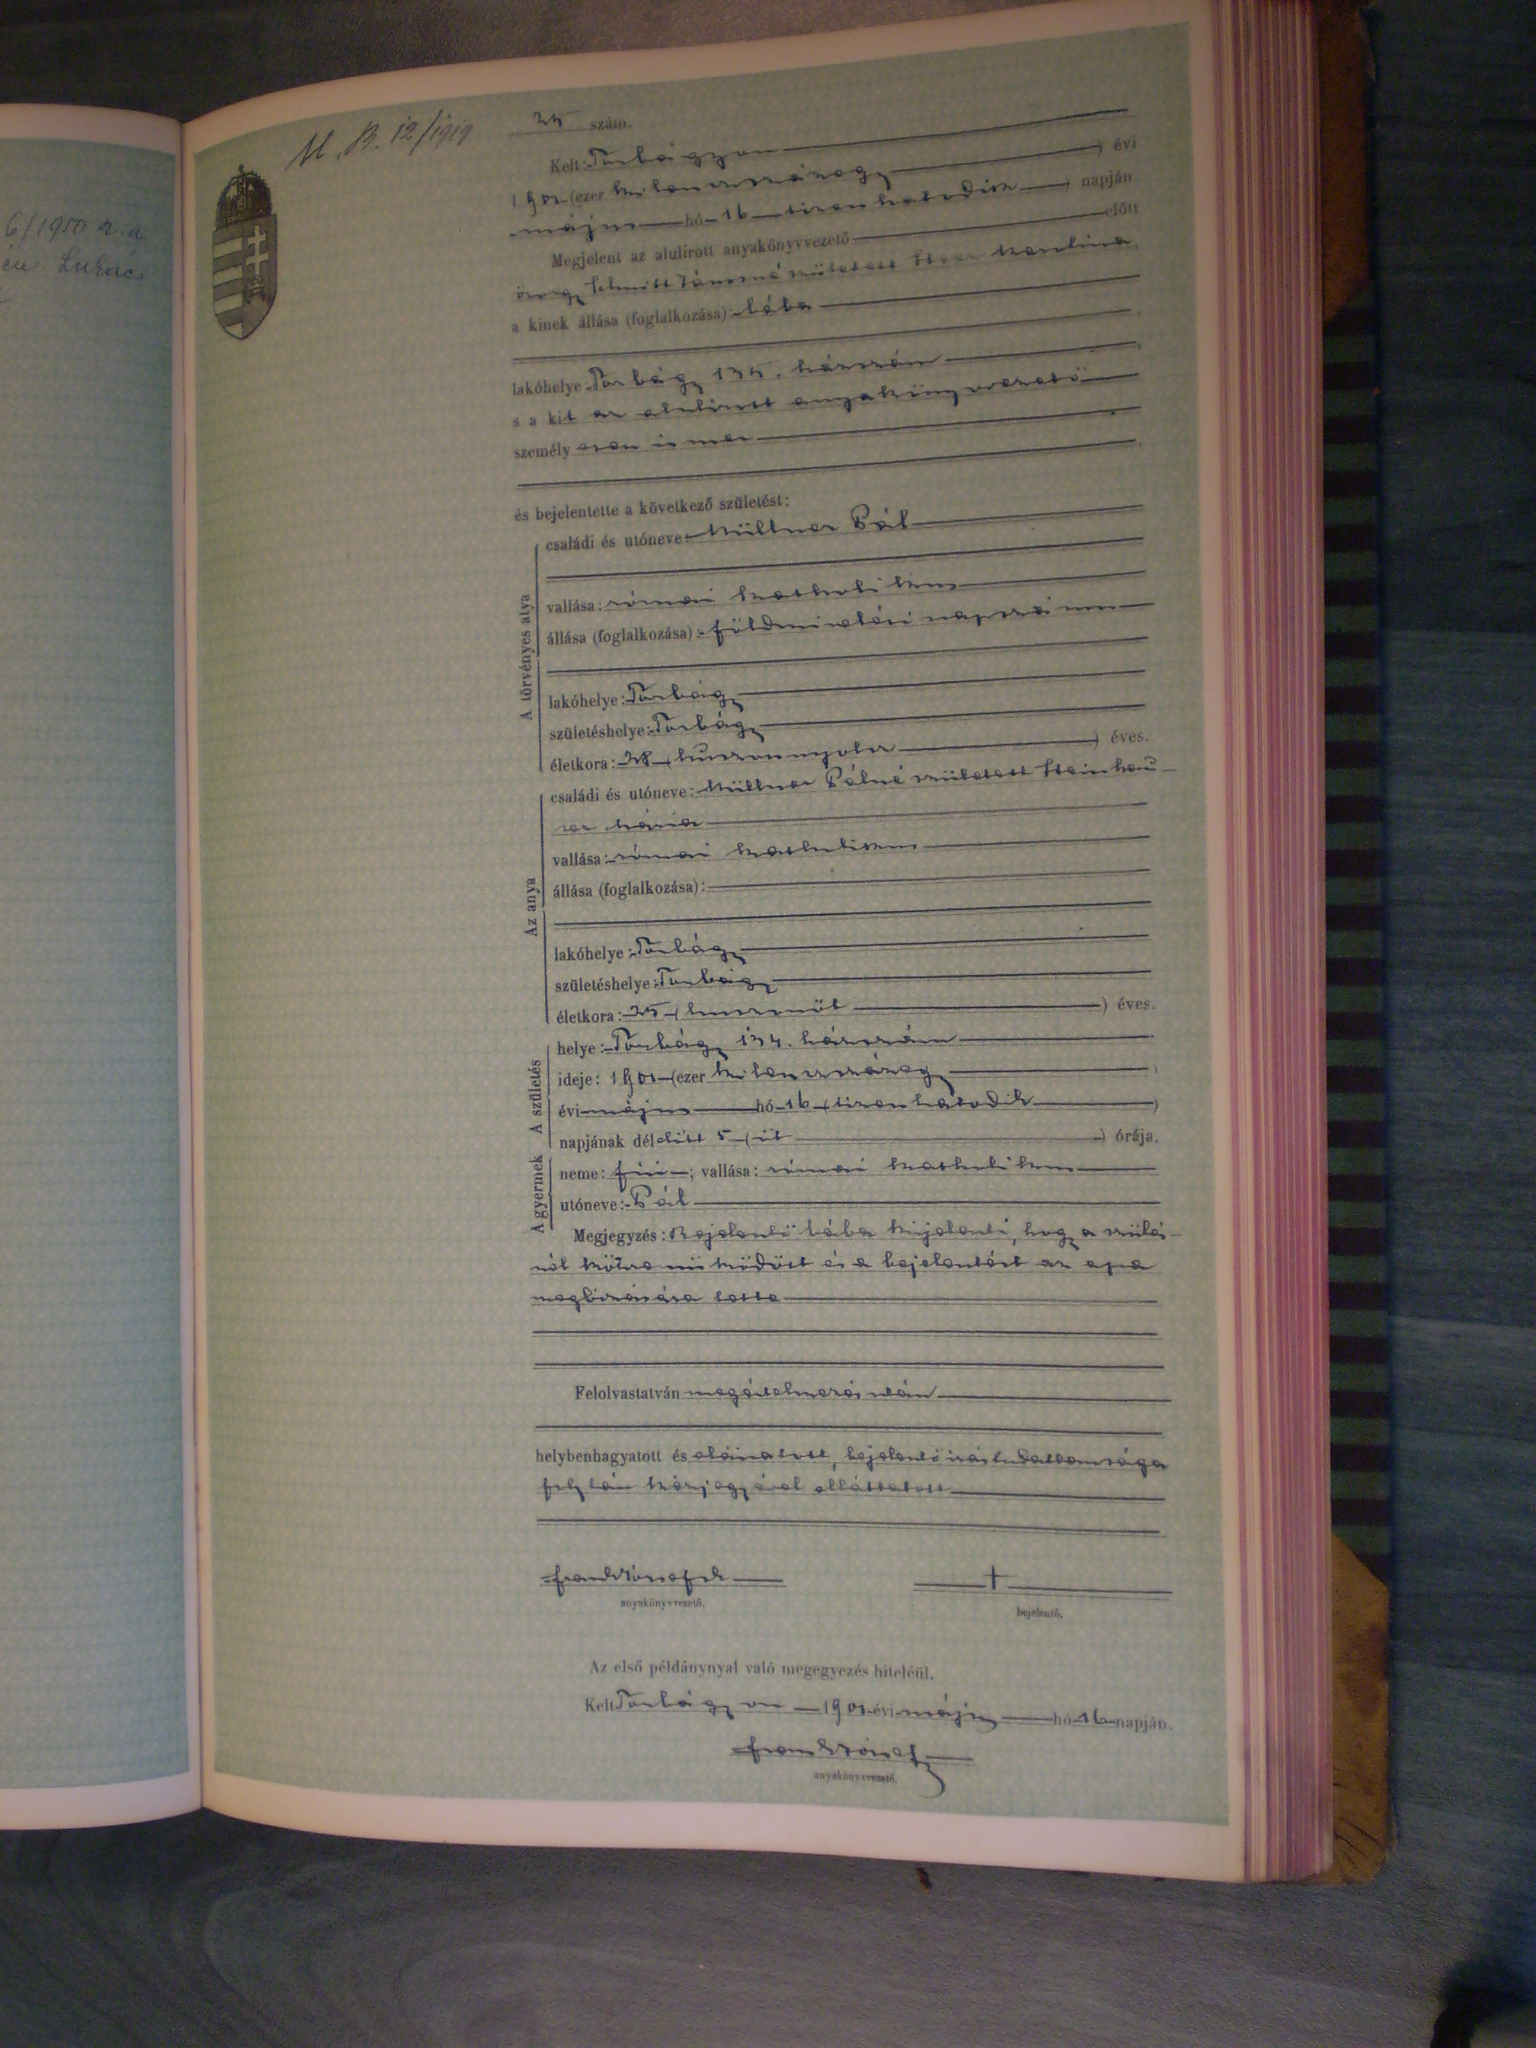 6/1950 n. a.
Lukács
M. B. 12/1919
25 szám.
Kelt: Torbágyon
1901 (ezer kilenczszázegy ) évi
május hó 16 tizenhatodik ) napján
Megjelent az alulírott anyakönyvvezető előtt
özvegy Schmitt Jánosné született Karolina
a kinek állása (foglalkozása): bába
lakóhelye: Torbágy 135. házszám
s a kit az alulirott anyakönyvvezető
személyesen ismer
és bejelentette a következő születést:
A törvényes atya
családi és utóneve: Müllner Pál
vallása: római katholikus
állása (foglalkozása): földmivelési napszámos
lakóhelye: Torbágy
születéshelye: Torbágy
életkora: 28 (huszonnyolcz ) éves.
Az anya
családi és utóneve: Müllner Pálné született Steinhau-
ser Mária
vallása: római katholikus
állása (foglalkozása):
lakóhelye: Torbágy
születéshelye: Torbágy
életkora: 25 (huszonöt ) éves.
A születés
helye: Torbágy 134. házszám
ideje: 1901 (ezer kilenczszázegy )
évi május hó 16 (tizenhatodik )
napjának délelőtt 5 (öt ) órája.
A gyermek
neme: fiú ; vallása: római katholikus
utóneve: Pál
Megjegyzés: Bejelentő bába kijelenti, hogy a szülés-
nél közreműködött és a bejelentést az apa
megbizására tette
Felolvastatván megértelmezés után
helybenhagyatott és aláiratott, bejelentő irástudatlansága
folytán kézjegyével elláttatott
Frank József
anyakönyvvezető.
†
bejelentő.
Az első példánynyal való megegyezés hiteléül.
Kelt Torbágyon 1901 évi május hó 16 napján.
Frank József
anyakönyvvezető.